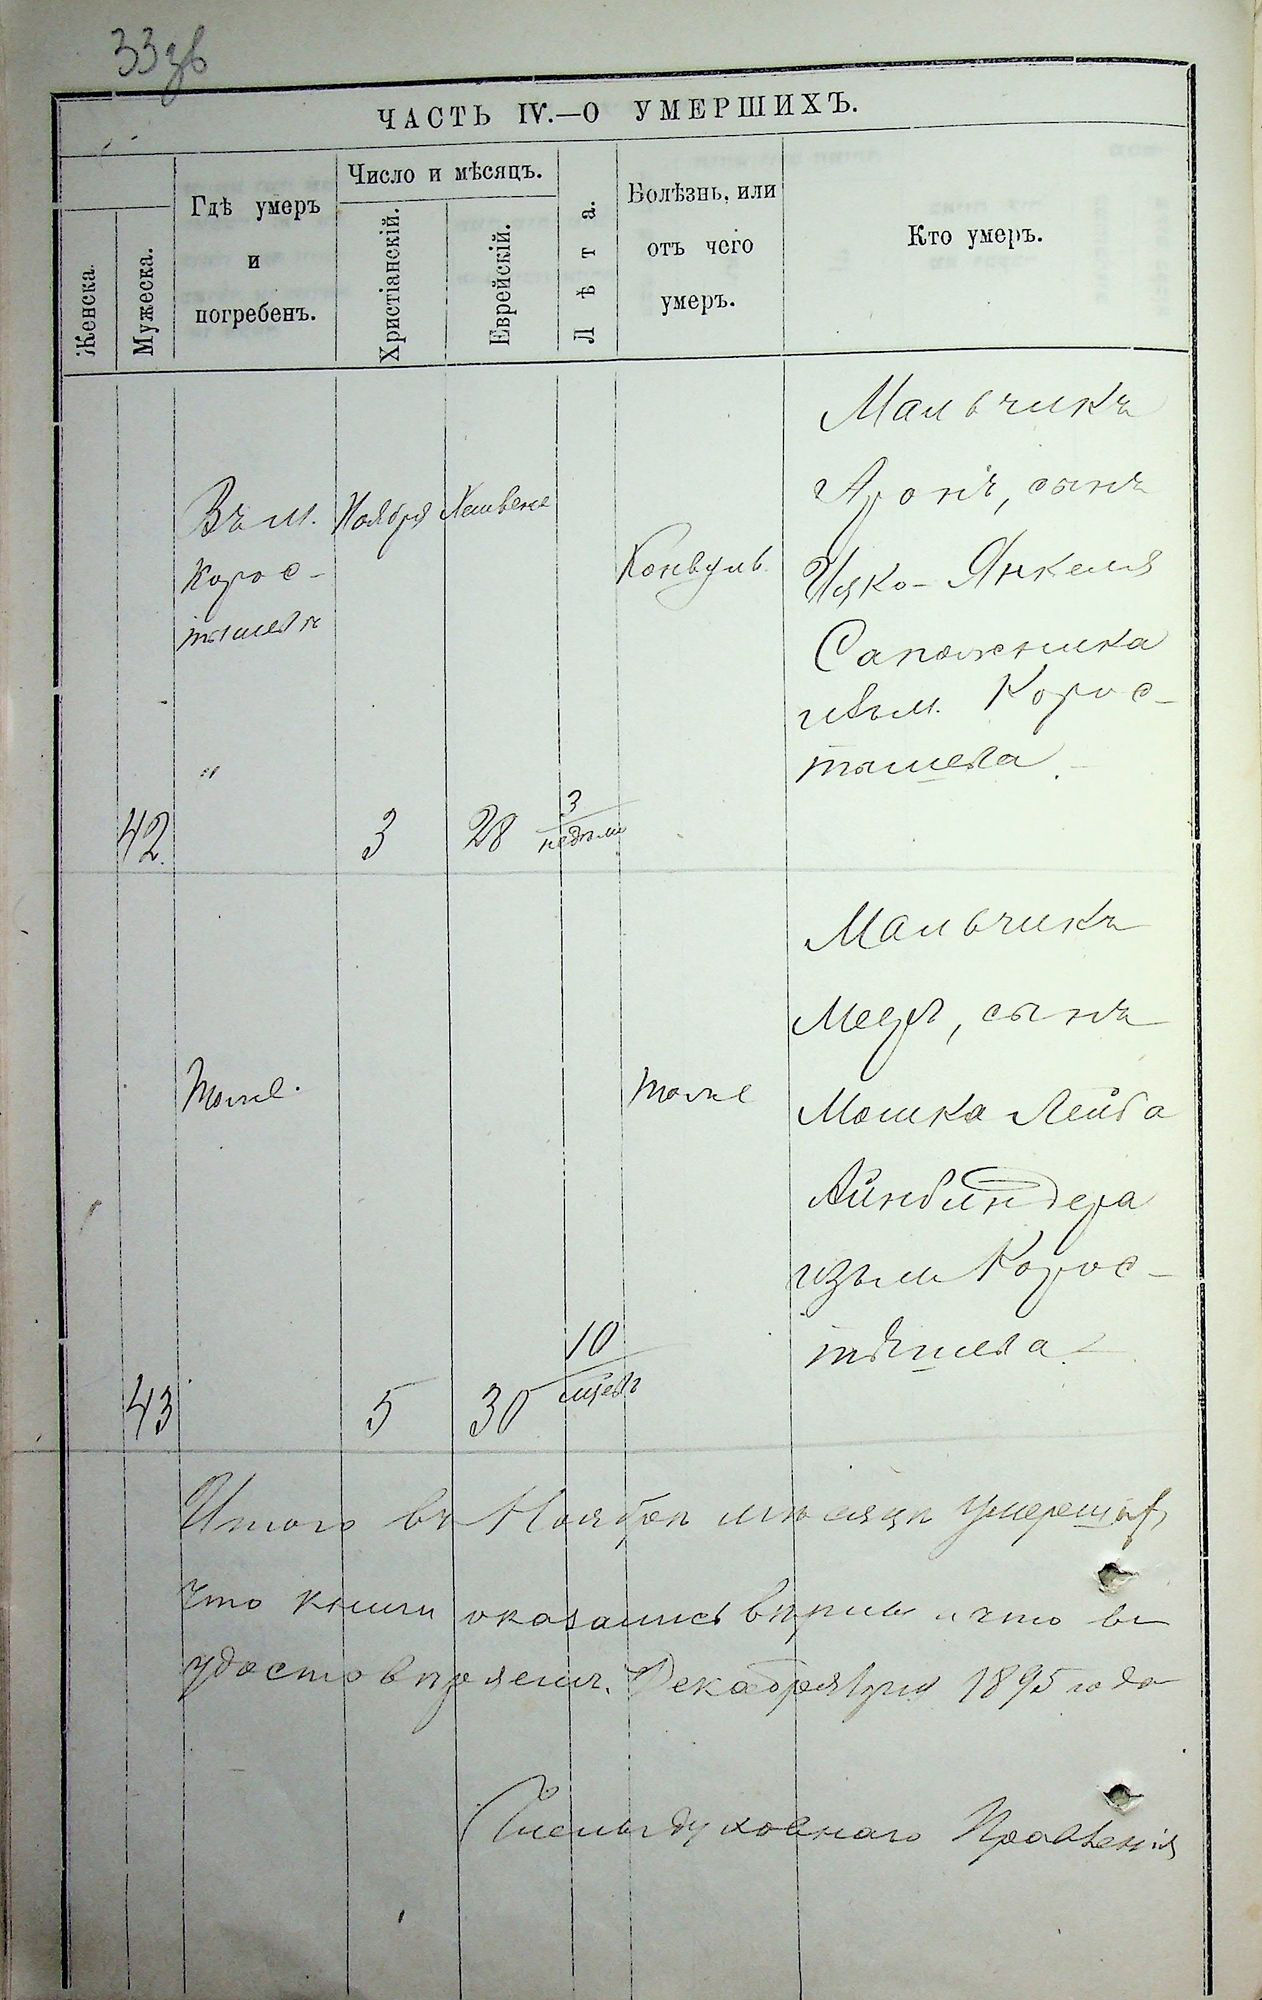 33зв
ЧАСТЬ IV.—О УМЕРШИХЪ.
Женска.
Мужеска.
Гдѣ умеръ
и
погребенъ.
Число и мѣсяцъ.
Христіанскій.
Еврейскій.
Лѣта.
Болѣзнь, или
отъ чего
умеръ.
Кто умеръ.
42
Въ м.
Корос-
тышевѣ
"
Ноября
3
28
3
недѣли
Конвуль.
Мальчикъ
Аронъ, сынъ
Ицко-Янкеля
Сапожника
изъ м. Корос-
тышева.
43
тоже.
5
30
10
мцевъ
тоже
Мальчикъ
Мееръ, сынъ
Мошка Лейба
Айнбиндера
изъ м Корос-
тышева.
Итого въ Ноябрѣ мѣсяцѣ умерших
что книги оказались вѣрны что
удостовѣряем. Декабря дня 1895 года
Члены духовнаго Правленія